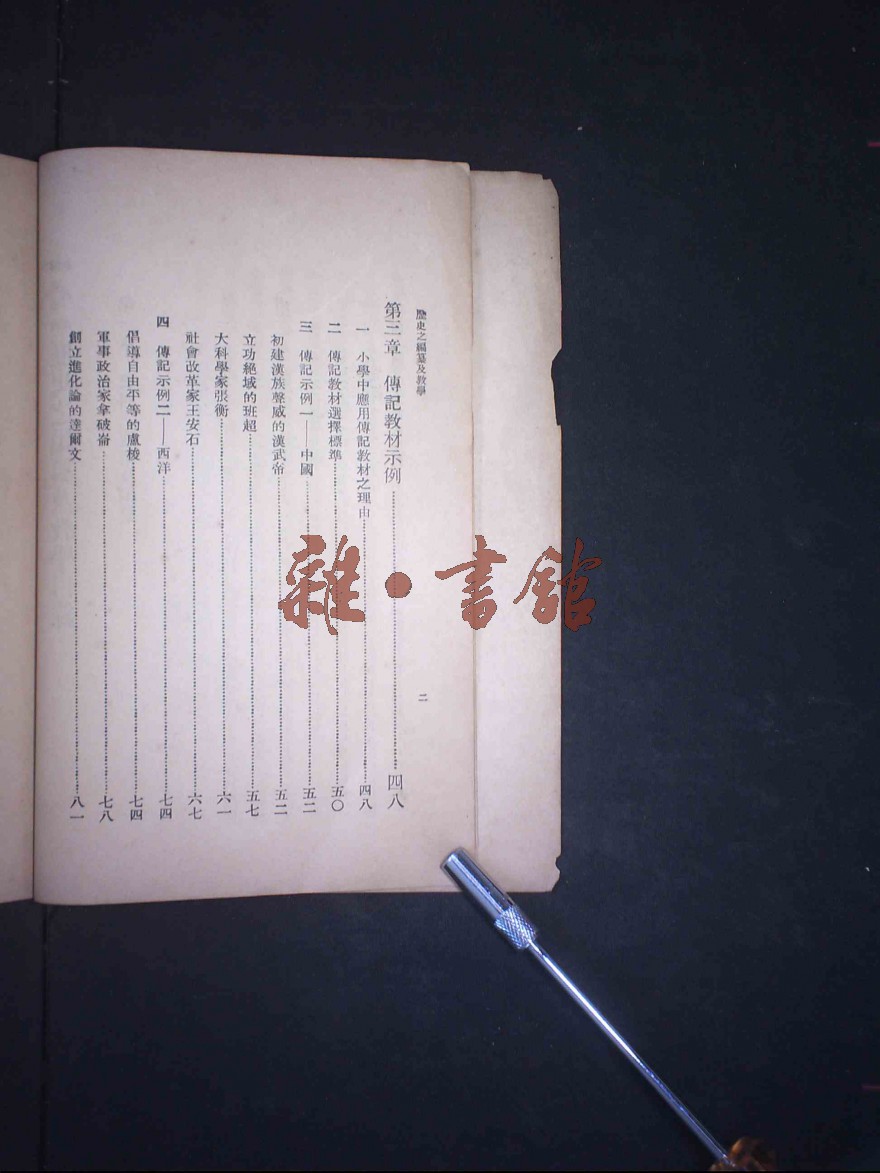 歷史之編纂及教學
二
第三章 傳記教材示例……四八
一 小學中應用傳記教材之理由……四八
二 傳記教材選擇標準……五〇
三 傳記示例一——中國……五二
初建漢族聲威的漢武帝……五二
立功絕域的班超……五七
大科學家張衡……六一
社會改革家王安石……六七
四 傳記示例二——西洋……七四
倡導自由平等的盧梭……七四
軍事政治家拿破崙……七八
創立進化論的達爾文……八一
雜·書館